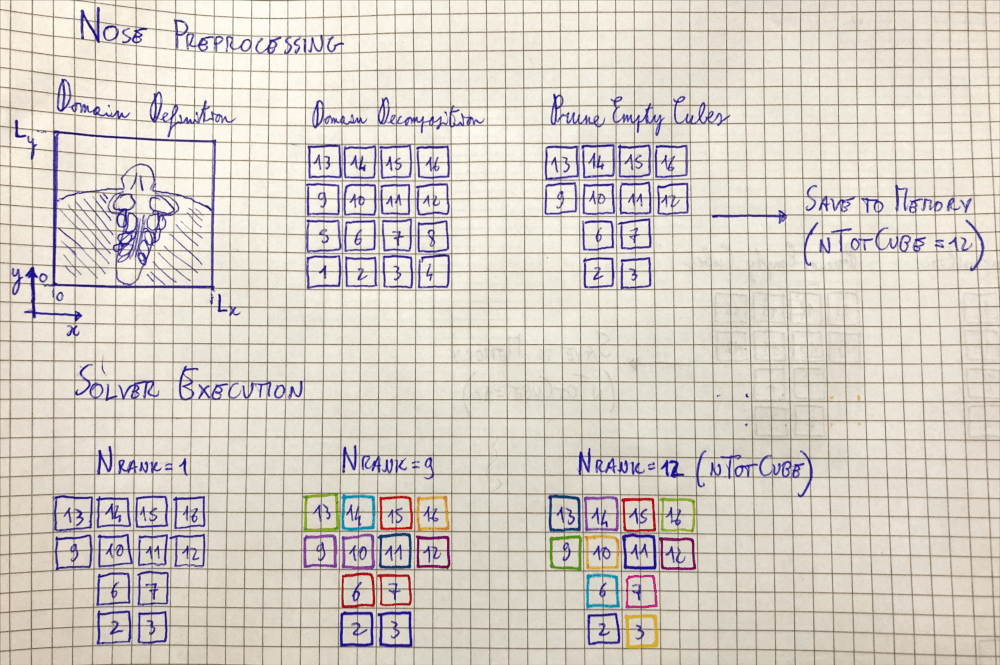 NOSE PREPROCESSING
Domain Definition
Ly
y
0
0
x
Lx
Domain Decomposition
13 14 15 16
9 10 11 12
5 6 7 8
1 2 3 4
Prune Empty Cubes
13 14 15 16
9 10 11 12
6 7
2 3
SAVE TO MEMORY
(NTOTCUBE=12)
SOLVER EXECUTION
NRANK=1
13 14 15 16
9 10 11 12
6 7
2 3
NRANK=9
13 14 15 16
9 10 11 12
6 7
2 3
NRANK=12 (NTOTCUBE)
13 14 15 16
9 10 11 12
6 7
2 3